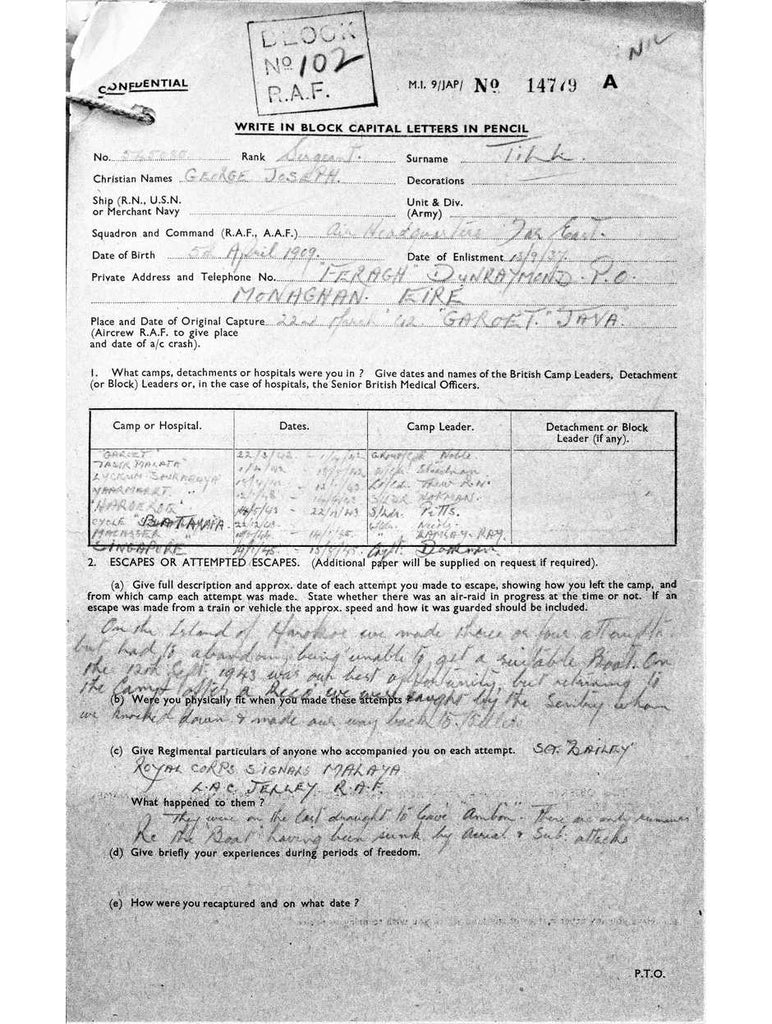 NIL
BLOCK
No 102
R.A.F.
CONFIDENTIAL
M.I. 9/JAP/ No 14779 A
WRITE IN BLOCK CAPITAL LETTERS IN PENCIL
No. Rank Sergeant. Surname
Christian Names GEORGE JOSEPH. Decorations
Ship (R.N., U.S.N.
or Merchant Navy
Unit & Div.
(Army)
Squadron and Command (R.A.F., A.A.F.) Air Headquarters Far East.
Date of Birth 5th April 1909. Date of Enlistment
Private Address and Telephone No. "FERAGH" DUNRAYMOND. P.O.
MONAGHAN. EIRE
Place and Date of Original Capture 22nd March '42. "GAROET." JAVA.
(Aircrew R.A.F. to give place
and date of a/c crash).
1. What camps, detachments or hospitals were you in ? Give dates and names of the British Camp Leaders, Detachment
(or Block) Leaders or, in the case of hospitals, the Senior British Medical Officers.
Camp or Hospital. Dates. Camp Leader. Detachment or Block
Leader (if any).
"GAROET" 22/3/42 Noble
LYCEUM SOURABAYA
JAARMARKT " S/LDR
"HAROEKOE" 22/11/43 S/Ldr. PITTS.
CYCLE BATAVIA
MACASSER " RAMSAY-RAY.
SINGAPORE
2. ESCAPES OR ATTEMPTED ESCAPES. (Additional paper will be supplied on request if required).
(a) Give full description and approx. date of each attempt you made to escape, showing how you left the camp, and
from which camp each attempt was made. State whether there was an air-raid in progress at the time or not. If an
escape was made from a train or vehicle the approx. speed and how it was guarded should be included.
On the Island of Haroekoe we made three or four attempts
but had to abandon, being unable to get a suitable Boat. On
the 12th Sept. 1943 was our best opportunity, but returning to
the Camp after a Recco we were caught by the Sentry whom
(b) Were you physically fit when you made these attempts
we knocked down & made our way back to
(c) Give Regimental particulars of anyone who accompanied you on each attempt. SGT. BAILEY
ROYAL CORPS SIGNALS MALAYA
L.A.C JELLEY R.A.F.
What happened to them ?
They were on the last draught to leave "Ambon". There are only rumours
Re the Boat having been sunk by Aerial & Sub: attacks
(d) Give briefly your experiences during periods of freedom.
(e) How were you recaptured and on what date ?
P.T.O.